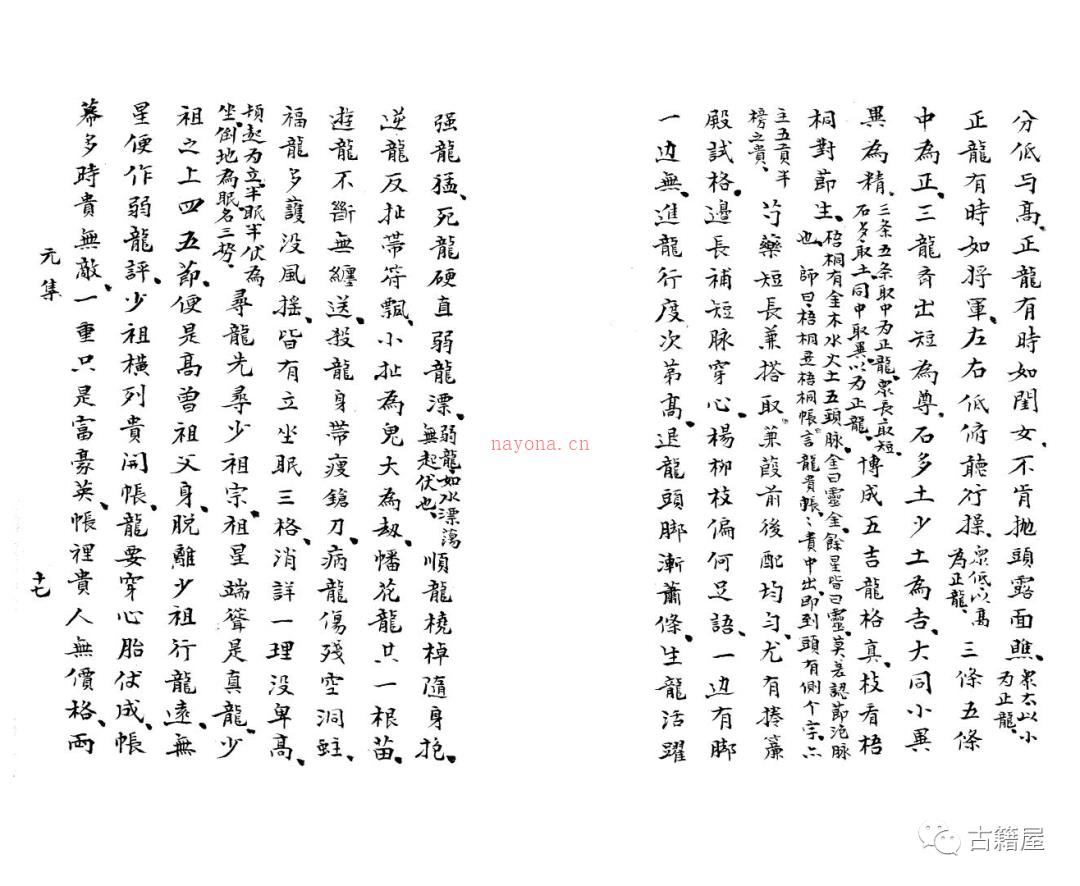 分低与高、正龍有時如閨女、不肯拋頭露面瞧、衆太以小为正龍、
正龍有時如将軍、左右低俯聽行操、衆低以高為正龍、三條五條
中為正、三龍斉出短為尊、石多土少土為吉、大同小異
異為精、三条五条取中为正龍、衆長取短、石多取土同中取異以为正龍、博成五吉龍格真、枝看梧
桐對節生、梧桐有金木水火土五頭脉金曰靈金、餘星皆曰靈、莫差認節泡脉也、師曰、梧桐是梧桐帳、言龍貴帳、〻貴中出、即到頭有側个宗、六
主五貢半榜之貴、芍藥短長兼搭取、兼葭前後配均匀、尤有捲簾
殿試格、邊長補短脉穿心、楊柳枝偏何足語、一边有脚
一边無、進龍行度次第高、退龍頭脚漸蕭條、生龍活躍
强龍猛、死龍硬直弱龍漂、弱龍、如水漂蕩無起伏也、順龍橈棹隨身抱、
逆龍反扯帶符飄、小扯為鬼大為劫、幡花龍共一根苗、
遊龍不斷無纏送、殺龍身帶瘦鎗刀、病龍傷殘空洞蛀、
福龍多護没風摇、皆有立坐眠三格、消詳一理没卑高、
頓起为立、半眠半伏為坐、倒地為眠、名三势、尋龍先尋少祖宗、祖星端聳是真龍、少
祖之上四五節、便是高曽祖父身、脱離少祖行龍遠、無
星便作弱龍評、少祖橫列貴開帳、龍要穿心胎伏成、帳
幕多時貴無敵、一重只是富豪英、帳裡貴人無價格、両
元集
十七
nayona.cn
古籍屋